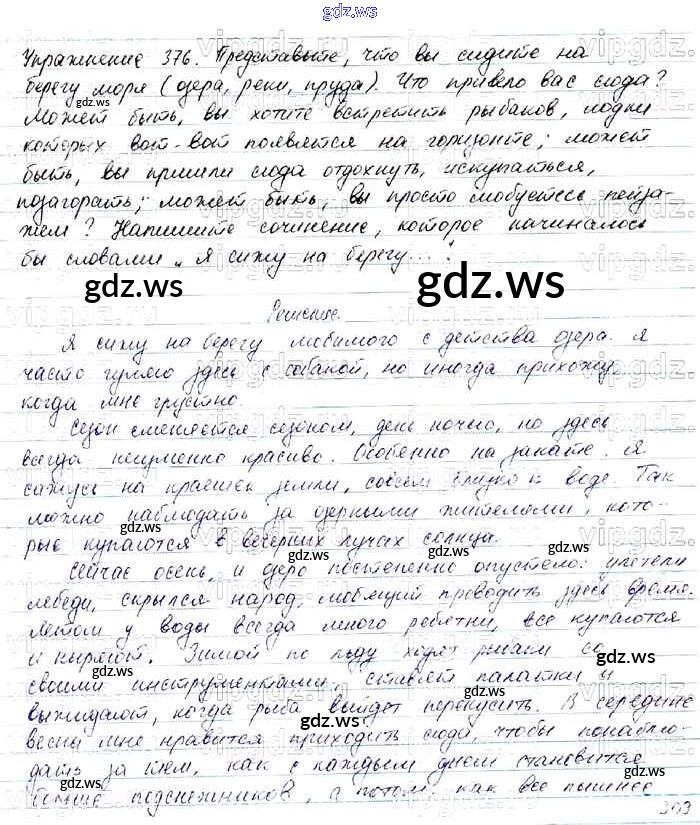 gdz.ws
Упражнение 376. Представьте, что вы сидите на
берегу моря (озера, реки, пруда). Что привело вас сюда?
Может быть, вы хотите встретить рыбаков, лодки
которых вот-вот появятся на горизонте; может
быть, вы пришли сюда отдохнуть, искупаться,
позагорать; может быть, вы просто любуетесь пейза-
жем? Напишите сочинение, которое начиналось
бы словами „Я сижу на берегу...".
Решение.
Я сижу на берегу любимого с детства озера. Я
часто гуляю здесь с собакой, но иногда прихожу,
когда мне грустно.
Сезон сменяется сезоном, день ночью, но здесь
всегда неизменно красиво. Особенно на закате. Я
сажусь на краешек земли, совсем близко к воде. Так
можно наблюдать за озерными жителями, кото-
рые купаются в вечерних лучах солнца.
Сейчас осень, и озеро постепенно опустело: улетели
лебеди, скрылся народ, любящий проводить здесь время.
Летом у воды всегда много ребятни, все купаются
и ныряют. Зимой по льду ходят рыбаки со
своими инструментами, ставят палатки и
выжидают, когда рыба выйдет перекусить. В середине
весны мне нравится приходить сюда, чтобы понаблю-
дать за тем, как с каждым днем становится
больше подснежников, а потом, как все пышнее
303